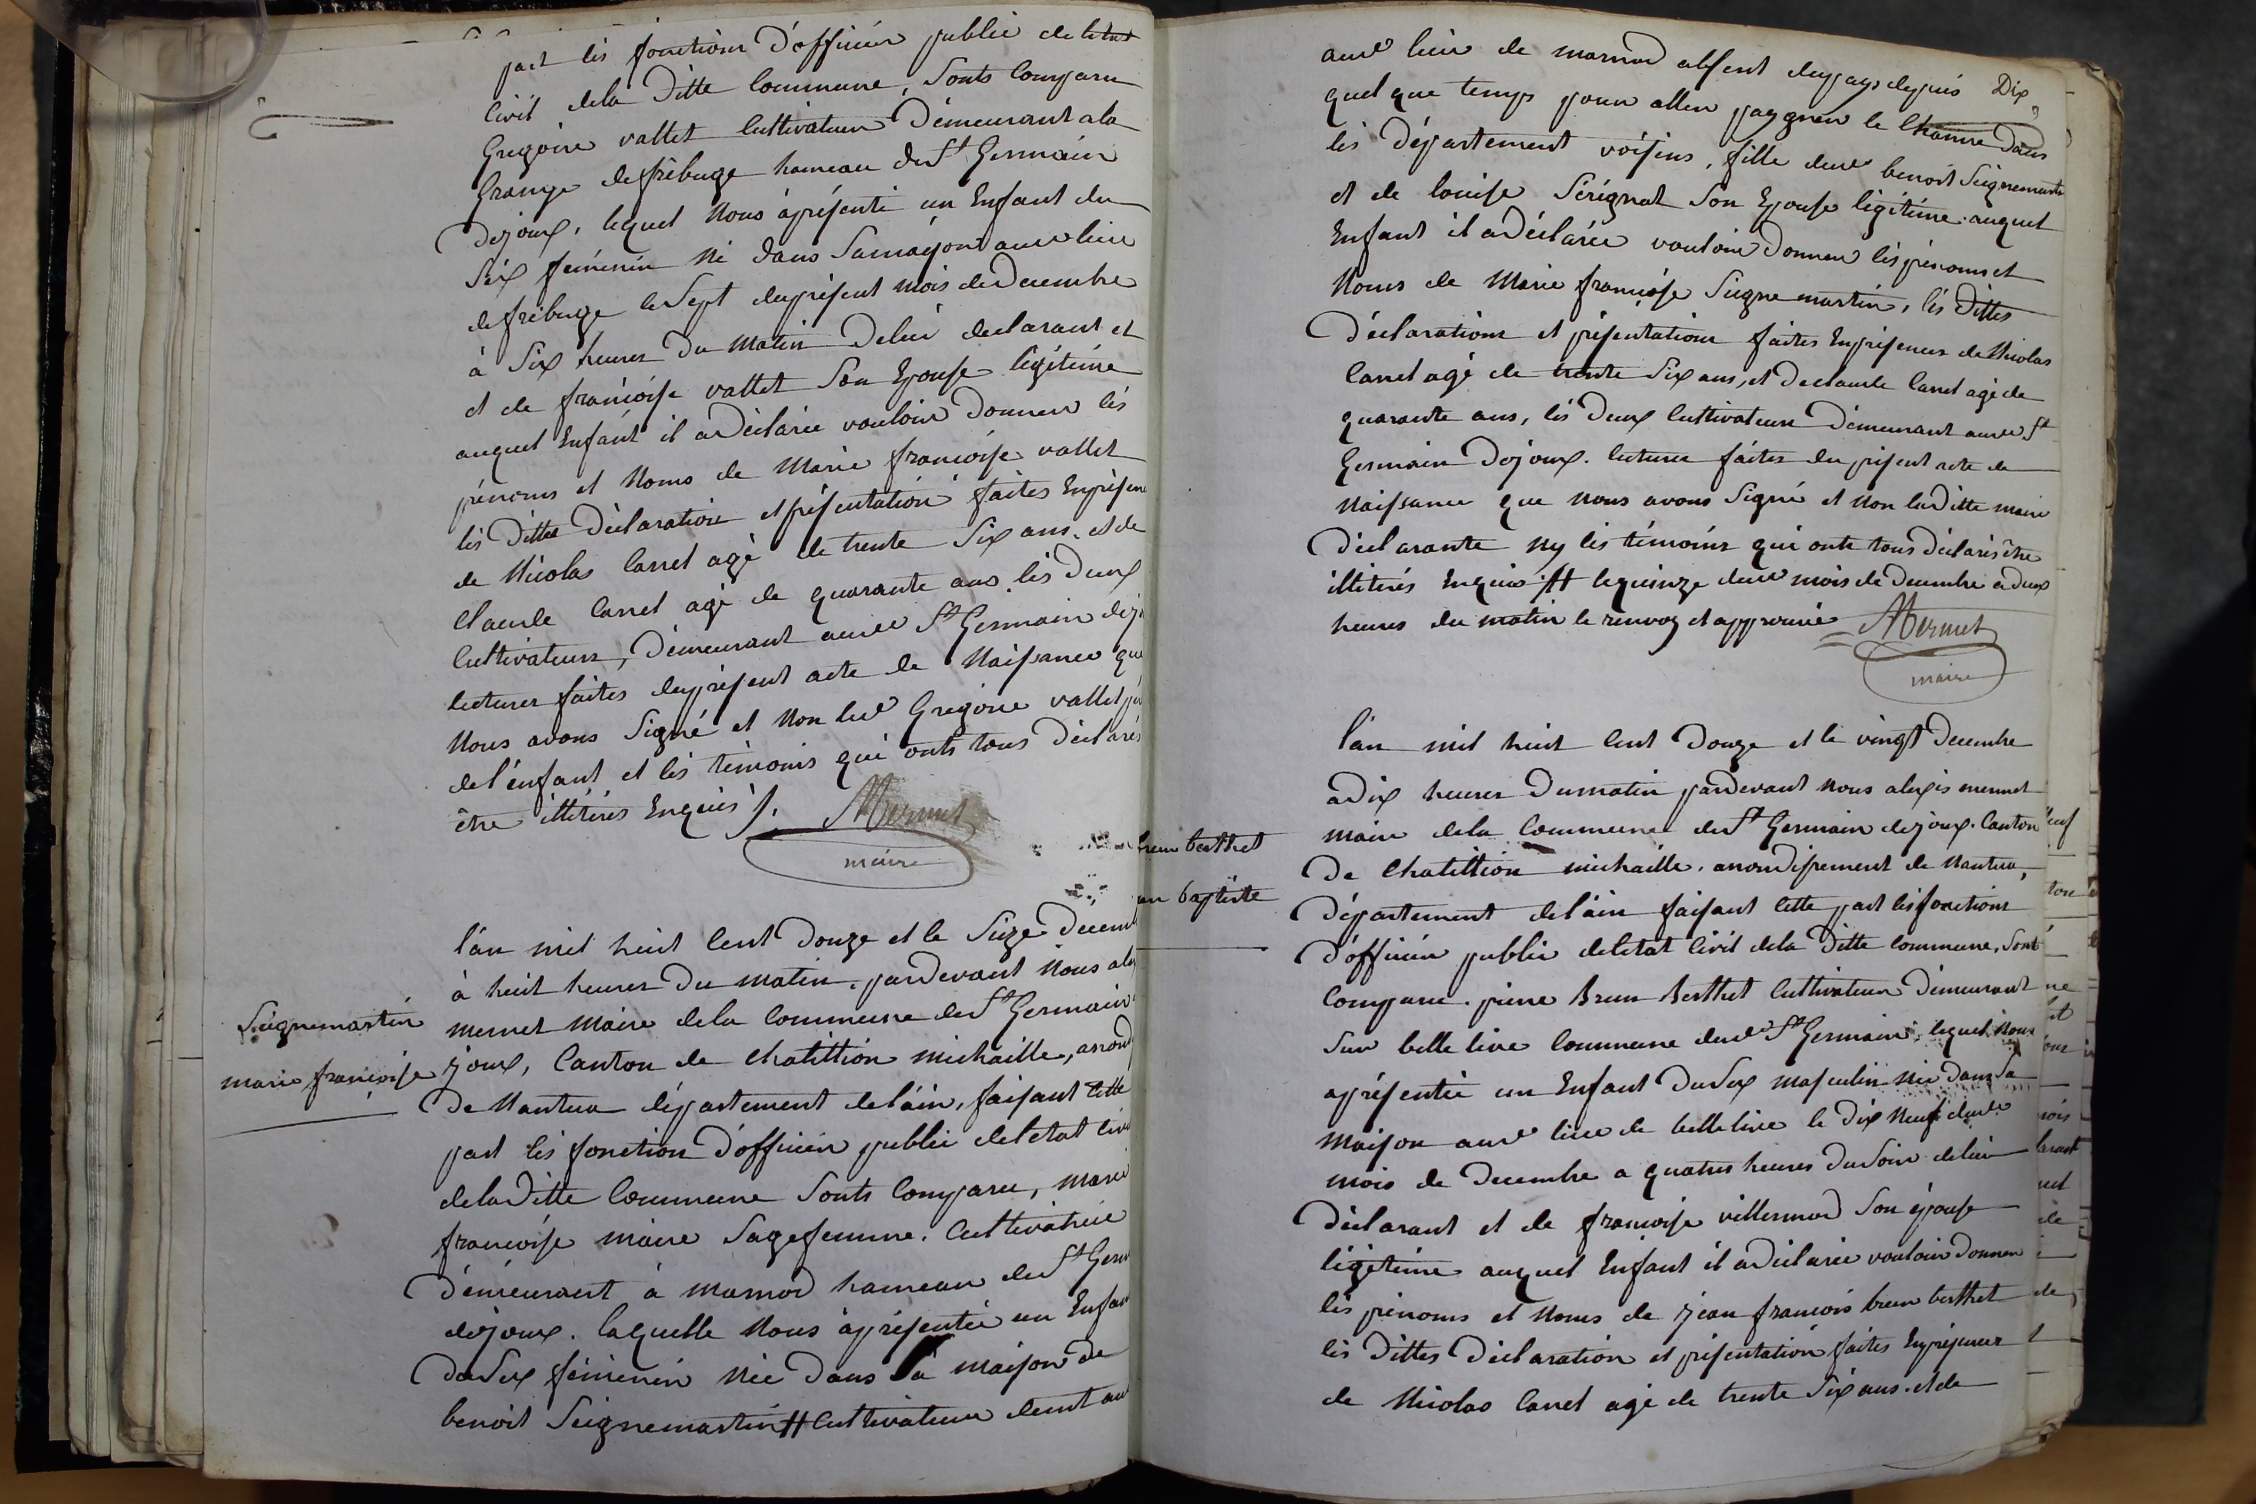 part les fonctions d'officier public de letat
civil dela ditte Commune, Sonts Comparu
Gregoire vallet Cultivateur Demeurant ala
Grange de frébuge hameau de St Germain
Dejoux, lequel Nous àprésenté un Enfant du
Séx féminin né dans Samaison aud lieu
de frébuge le Sept duprésent mois de Decembre
à Six heures Du Matin Delui declarant et
et de francoise vallet Son Epouse légitime
auquel Enfant il a Déclarée vouloir Donner lés
prénoms et Noms de Marie francoise vallet
lés Dittes Déclaration et présentation faites Enprésen
de Nicolas Carrel agé de trente Six ans. et de
Claude Carrel agé de quarante ans. lés deux
Cultivateurs, Demeurant aud St Germain dejo
lectures faites duprésent acte de Naissance que
Nous avons Signé et Non led Gregoire vallet pé
del'énfant et lés témoins qui onts tous Déclarés
être illitérés Enquis ./.
AMermet
maire
Seignemartin
marie francoise
l'án mil huit Cent Douze et le Seize Décem
à huit heures Du matin, pardevant Nous alex
mermet Maire dela Commune de St Germain
joux, Canton de Chatillion michaille, arrond
De Nantua département deláin, faisant Cette
part lés fonction d'officier public deletat civi
delaDitte Commune Sonts Comparu, Marie
francoise maire Sagefemme. Cultivatrice
Démeurant à marnod hameau de St Germ
dejoux. laquelle Nous àprésentée un Enfan
duSex féminin née dans Sa maison de
benoit Seignemartin # Cultivateur demt au
aud lieu de marnod absent dupays depuis Dix
quel que temps pour aller paygner le Chanvre Dans
lés département voisins, fille dud benoit Seignemartin
et de louise Sérignat Son Epouse légitime. auquel
Enfant il a Déclarée vouloir Donner lés prénoms et
Noms de Marie francoise Seigne martin, lés Dittes
Déclarations et présentations faites Enprésences de Nicolas
Carrel agé de trente Six ans, et declaude Carrel agé de
quarante ans, lés Deux Cultivateurs Démeurant aud St
Germain Dejoux. lectures faites du présent acte de
Naissance que Nous avons Signé et Non laditte maire
Déclarante ny lés témoins qui onts tous Déclarés être
illitérés Enquis # lequinze dud mois de Decembre a Deux
heures du matin le renvoy et approuvé AMermet
maire
brun berthet
an baptiste
l'án mil huit Cent Douze et le vingt Decembre
adix heures Dumatin pardevant Nous alexis mermet
maire dela Commune de St Germain dejoux. Canton
De Chatillion michaille. arrondissement de Nantua,
Département deláin faisant Cette part lésfonctions
d'officier public deletat Civil dela Ditte Commune, Sont
Comparu. pierre Brun Berthet Cultivateur Démeurant
Sur belle live Commune dud St Germain, lequel Nous
aprésentée un Enfant DuSex masculin née dans Sa
Maison aud lieu de bellelive le Dix Neuf dud
mois de Decembre a quatres heures duSoir delui
Déclarant et de francoise villermod Son épouse
légitime auquel Enfant il a Déclarée vouloir Donner
lés prénoms et Noms de jean francois brun berthet
lés Dittes Déclaration et présentation faites Enprésences
de Nicolas Carrel agé de trente Six ans. et de